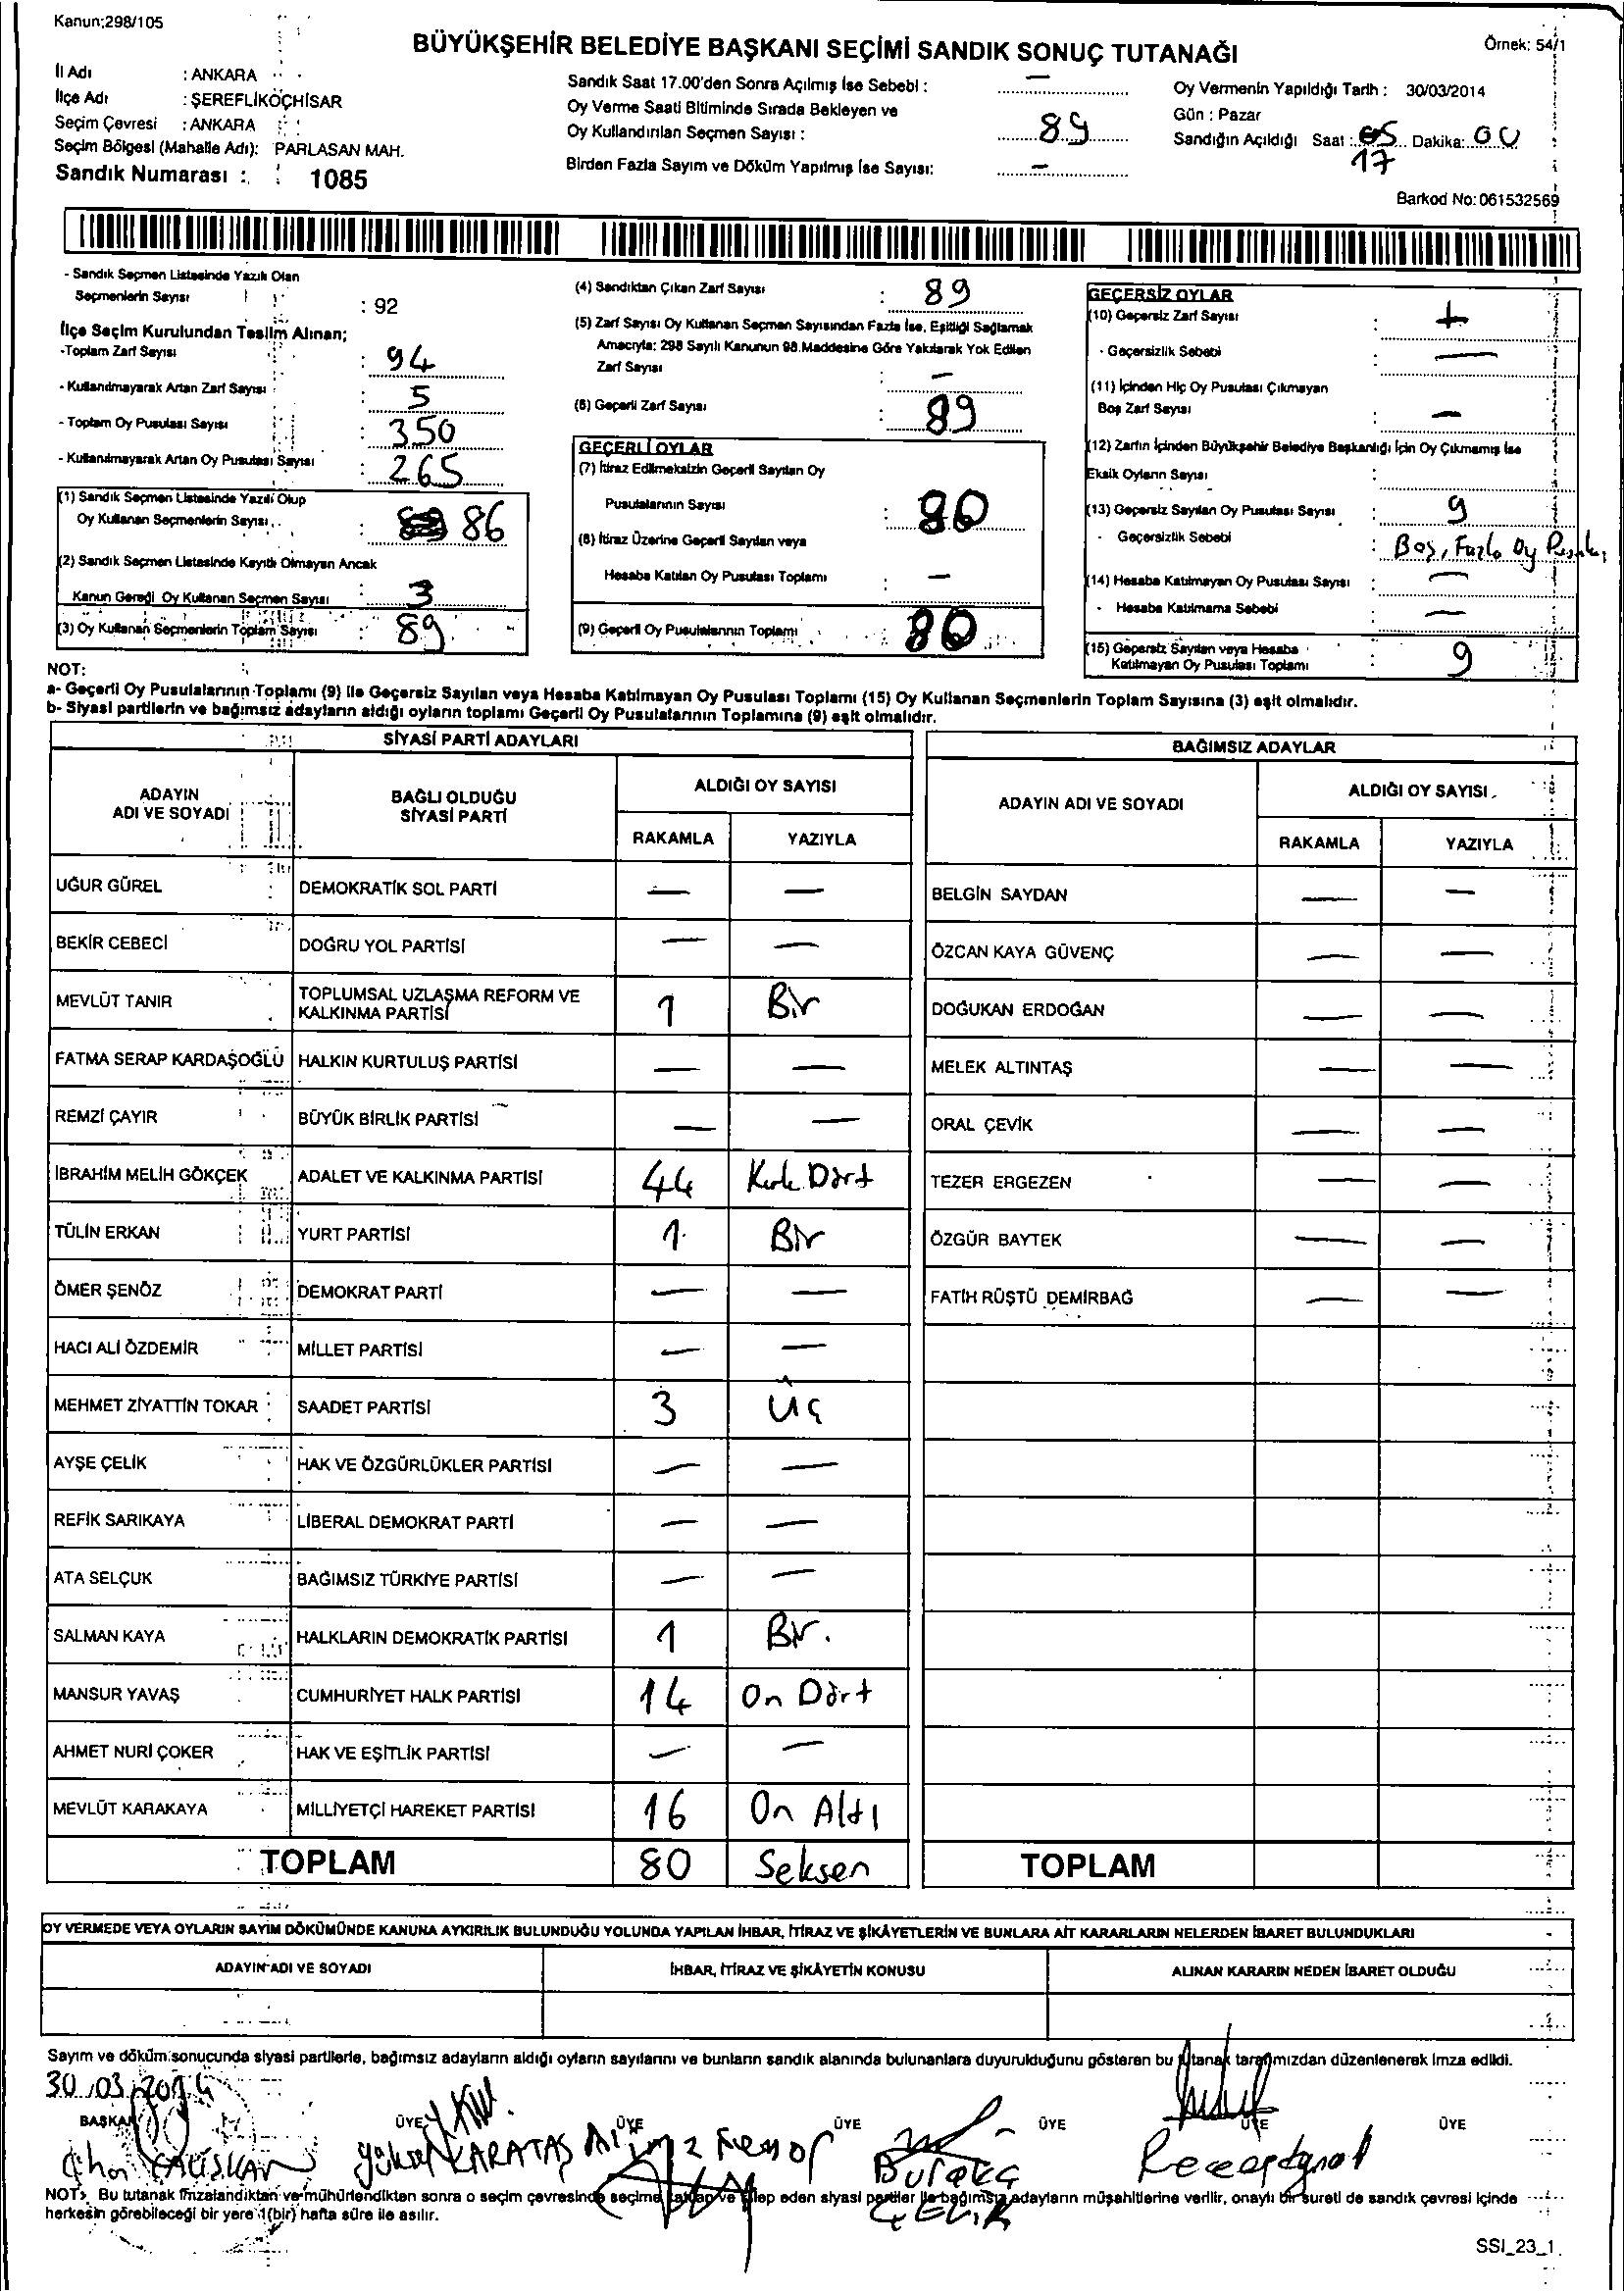 Kanun;298/105
Örnek: 54/1
BÜYÜKŞEHİR BELEDİYE BAŞKANI SEÇİMİ SANDIK SONUÇ TUTANAĞI
İl Adı : ANKARA
İlçe Adı : ŞEREFLİKOÇHİSAR
Seçim Çevresi : ANKARA
Seçim Bölgesi (Mahalle Adı): PARLASAN MAH.
Sandık Numarası : 1085
Sandık Saat 17.00'den Sonra Açılmış İse Sebebi : —
Oy Verme Saati Bitiminde Sırada Bekleyen ve
Oy Kullandırılan Seçmen Sayısı : 89
Birden Fazla Sayım ve Döküm Yapılmış İse Sayısı: —
Oy Vermenin Yapıldığı Tarih : 30/03/2014
Gün : Pazar
Sandığın Açıldığı Saat : 17 Dakika: 00
Barkod No:061532569
- Sandık Seçmen Listesinde Yazılı Olan
Seçmenlerin Sayısı : 92
İlçe Seçim Kurulundan Teslim Alınan;
-Toplam Zarf Sayısı : 94
- Kullanılmayarak Artan Zarf Sayısı : 5
- Toplam Oy Pusulası Sayısı : 350
- Kullanılmayarak Artan Oy Pusulası Sayısı : 265
(1) Sandık Seçmen Listesinde Yazılı Olup
Oy Kullanan Seçmenlerin Sayısı : 86
(2) Sandık Seçmen Listesinde Kayıtlı Olmayan Ancak
Kanun Gereği Oy Kullanan Seçmen Sayısı : 3
(3) Oy Kullanan Seçmenlerin Toplam Sayısı : 89
(4) Sandıktan Çıkan Zarf Sayısı : 89
(5) Zarf Sayısı Oy Kullanan Seçmen Sayısından Fazla İse, Eşitliği Sağlamak
Amacıyla: 298 Sayılı Kanunun 98.Maddesine Göre Yakılarak Yok Edilen
Zarf Sayısı : —
(6) Geçerli Zarf Sayısı : 89
GEÇERLİ OYLAR
(7) İtiraz Edilmeksizin Geçerli Sayılan Oy
Pusulalarının Sayısı : 80
(8) İtiraz Üzerine Geçerli Sayılan veya
Hesaba Katılan Oy Pusulası Toplamı : —
(9) Geçerli Oy Pusulalarının Toplamı : 80
GEÇERSİZ OYLAR
(10) Geçersiz Zarf Sayısı :
- Geçersizlik Sebebi : —
(11) İçinden Hiç Oy Pusulası Çıkmayan
Boş Zarf Sayısı : —
(12) Zarfın İçinden Büyükşehir Belediye Başkanlığı İçin Oy Çıkmamış İse
Eksik Oyların Sayısı :
(13) Geçersiz Sayılan Oy Pusulası Sayısı : 9
- Geçersizlik Sebebi : Boş, Fazla Oy
(14) Hesaba Katılmayan Oy Pusulası Sayısı : —
- Hesaba Katılmama Sebebi : —
(15) Geçersiz Sayılan veya Hesaba
Katılmayan Oy Pusulası Toplamı : 9
NOT:
a- Geçerli Oy Pusulalarının Toplamı (9) ile Geçersiz Sayılan veya Hesaba Katılmayan Oy Pusulası Toplamı (15) Oy Kullanan Seçmenlerin Toplam Sayısına (3) eşit olmalıdır.
b- Siyasi partilerin ve bağımsız adayların aldığı oyların toplamı Geçerli Oy Pusulalarının Toplamına (9) eşit olmalıdır.
SİYASİ PARTİ ADAYLARI
ADAYIN ADI VE SOYADI
BAĞLI OLDUĞU SİYASİ PARTİ
ALDIĞI OY SAYISI
RAKAMLA YAZIYLA
UĞUR GÜREL DEMOKRATİK SOL PARTİ — —
BEKİR CEBECİ DOĞRU YOL PARTİSİ — —
MEVLÜT TANIR TOPLUMSAL UZLAŞMA REFORM VE KALKINMA PARTİSİ 1 Bir
FATMA SERAP KARDAŞOĞLU HALKIN KURTULUŞ PARTİSİ — —
REMZİ ÇAYIR BÜYÜK BİRLİK PARTİSİ — —
İBRAHİM MELİH GÖKÇEK ADALET VE KALKINMA PARTİSİ 44 Kırk Dört
TÜLİN ERKAN YURT PARTİSİ 1 Bir
ÖMER ŞENÖZ DEMOKRAT PARTİ — —
HACI ALİ ÖZDEMİR MİLLET PARTİSİ — —
MEHMET ZİYATTİN TOKAR SAADET PARTİSİ 3 Üç
AYŞE ÇELİK HAK VE ÖZGÜRLÜKLER PARTİSİ — —
REFİK SARIKAYA LİBERAL DEMOKRAT PARTİ — —
ATA SELÇUK BAĞIMSIZ TÜRKİYE PARTİSİ — —
SALMAN KAYA HALKLARIN DEMOKRATİK PARTİSİ 1 Bir.
MANSUR YAVAŞ CUMHURİYET HALK PARTİSİ 14 On Dört
AHMET NURİ ÇOKER HAK VE EŞİTLİK PARTİSİ — —
MEVLÜT KARAKAYA MİLLİYETÇİ HAREKET PARTİSİ 16 On Altı
TOPLAM 80 Seksen
BAĞIMSIZ ADAYLAR
ADAYIN ADI VE SOYADI
ALDIĞI OY SAYISI
RAKAMLA YAZIYLA
BELGİN SAYDAN — —
ÖZCAN KAYA GÜVENÇ — —
DOĞUKAN ERDOĞAN — —
MELEK ALTINTAŞ — —
ORAL ÇEVİK — —
TEZER ERGEZEN — —
ÖZGÜR BAYTEK — —
FATİH RÜŞTÜ DEMİRBAĞ — —
TOPLAM
OY VERMEDE VEYA OYLARIN SAYIM DÖKÜMÜNDE KANUNA AYKIRILIK BULUNDUĞU YOLUNDA YAPILAN İHBAR, İTİRAZ VE ŞİKÂYETLERİN VE BUNLARA AİT KARARLARIN NELERDEN İBARET BULUNDUKLARI
ADAYIN ADI VE SOYADI
İHBAR, İTİRAZ VE ŞİKÂYETİN KONUSU
ALINAN KARARIN NEDEN İBARET OLDUĞU
Sayım ve döküm sonucunda siyasi partilerle, bağımsız adayların aldığı oyların sayılarını ve bunların sandık alanında bulunanlara duyurulduğunu gösteren bu tutanak tarafımızdan düzenlenerek imza edildi.
30.03.2014
BAŞKAN ÜYE ÜYE ÜYE ÜYE ÜYE ÜYE
ÇALIŞKAN
KARATAŞ
ÇELİK
NOT: Bu tutanak imzalandıktan ve mühürlendikten sonra o seçim çevresinde seçime katılan ve talep eden siyasi partiler ile bağımsız adayların müşahitlerine verilir, onaylı bir sureti de sandık çevresi içinde
herkesin görebileceği bir yere 1(bir) hafta süre ile asılır.
SSI_23_1